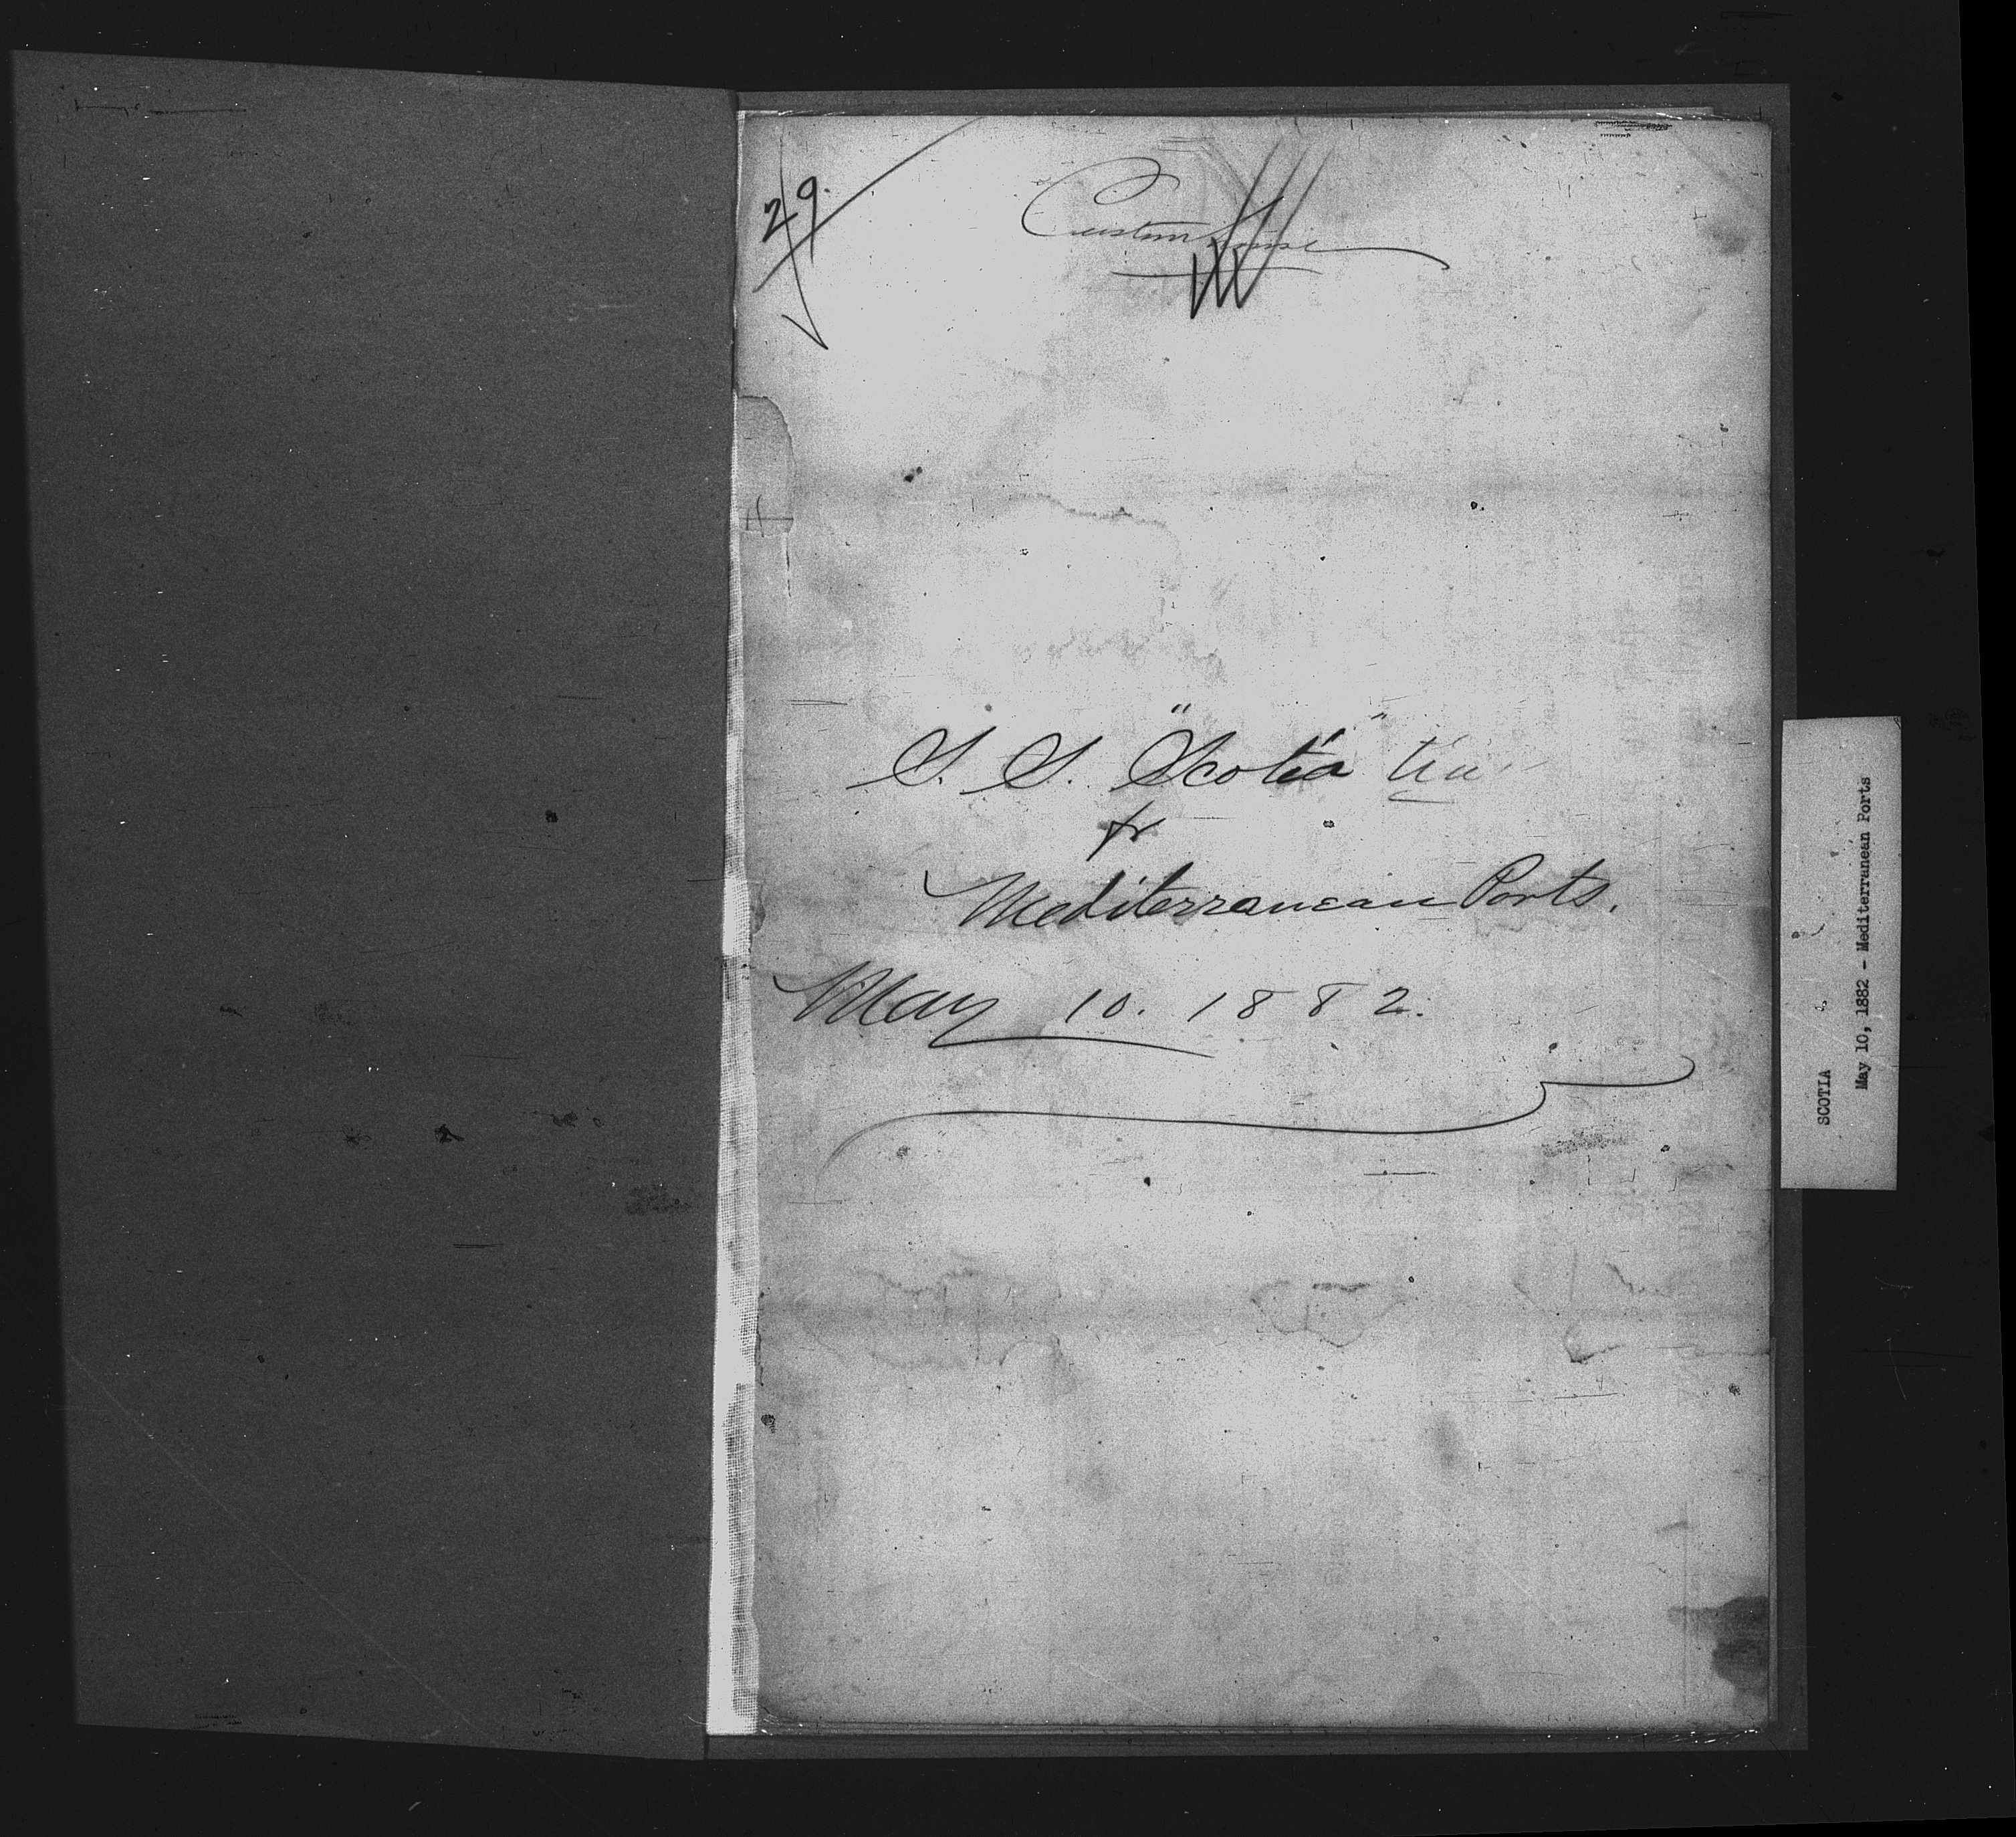 29.
Custom House
S. S. "Scotia"
fr
Mediterranean Ports.
May 10. 1882.
SCOTIA
May 10, 1882 - Mediterranean Ports